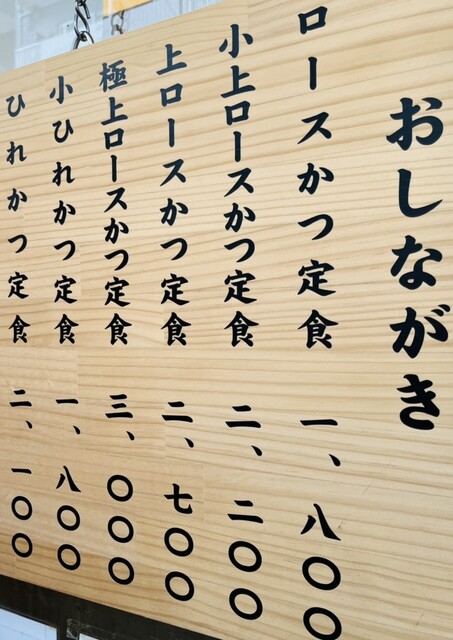 おしながき
ロースかつ定食 一、八〇〇
小上ロースかつ定食 二、二〇〇
上ロースかつ定食 二、七〇〇
極上ロースかつ定食 三、〇〇〇
小ひれかつ定食 一、八〇〇
ひれかつ定食 二、一〇〇